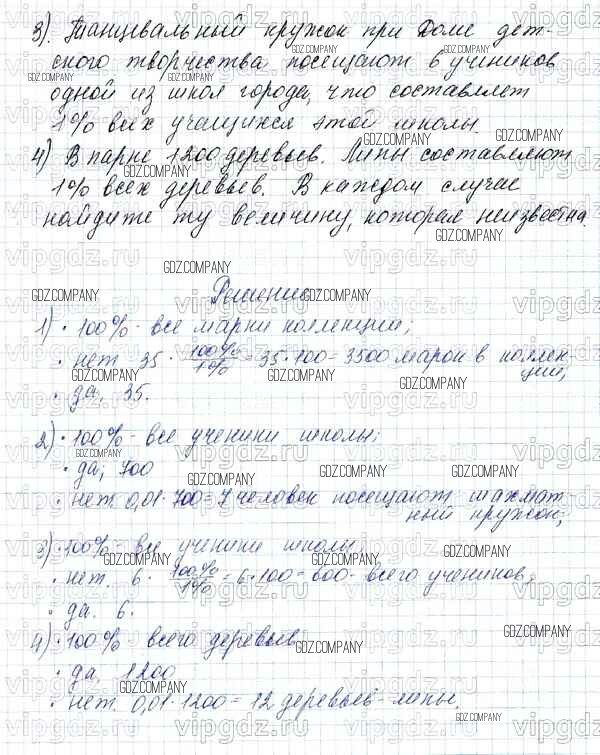 3). Танцевальный кружок при Доме дет-
ского творчества посещают 6 учеников
одной из школ города, что составляет
1% всех учащихся этой школы.
4) В парке 1200 деревьев. Липы составляют
1% всех деревьев. В каждом случае
найдите ту величину, которая неизвестна.
Решение
1) • 100% - все марки коллекции;
• нет. 35 · 100%/1% = 35 · 100 = 3500 марок в коллек-
ции;
• да, 35.
2) • 100% - все ученики школы;
• да; 700
• нет. 0,01 · 700 = 7 человек посещают шахмат-
ный кружок;
3) • 100% - все ученики школы
• нет. 6 · 100%/1% = 6 · 100 = 600 - всего учеников;
• да. 6.
4) • 100% - всего деревьев
• да. 1200
• нет. 0,01 · 1200 = 12 деревьев - липы.
GDZ.COMPANY
vipgdz.ru